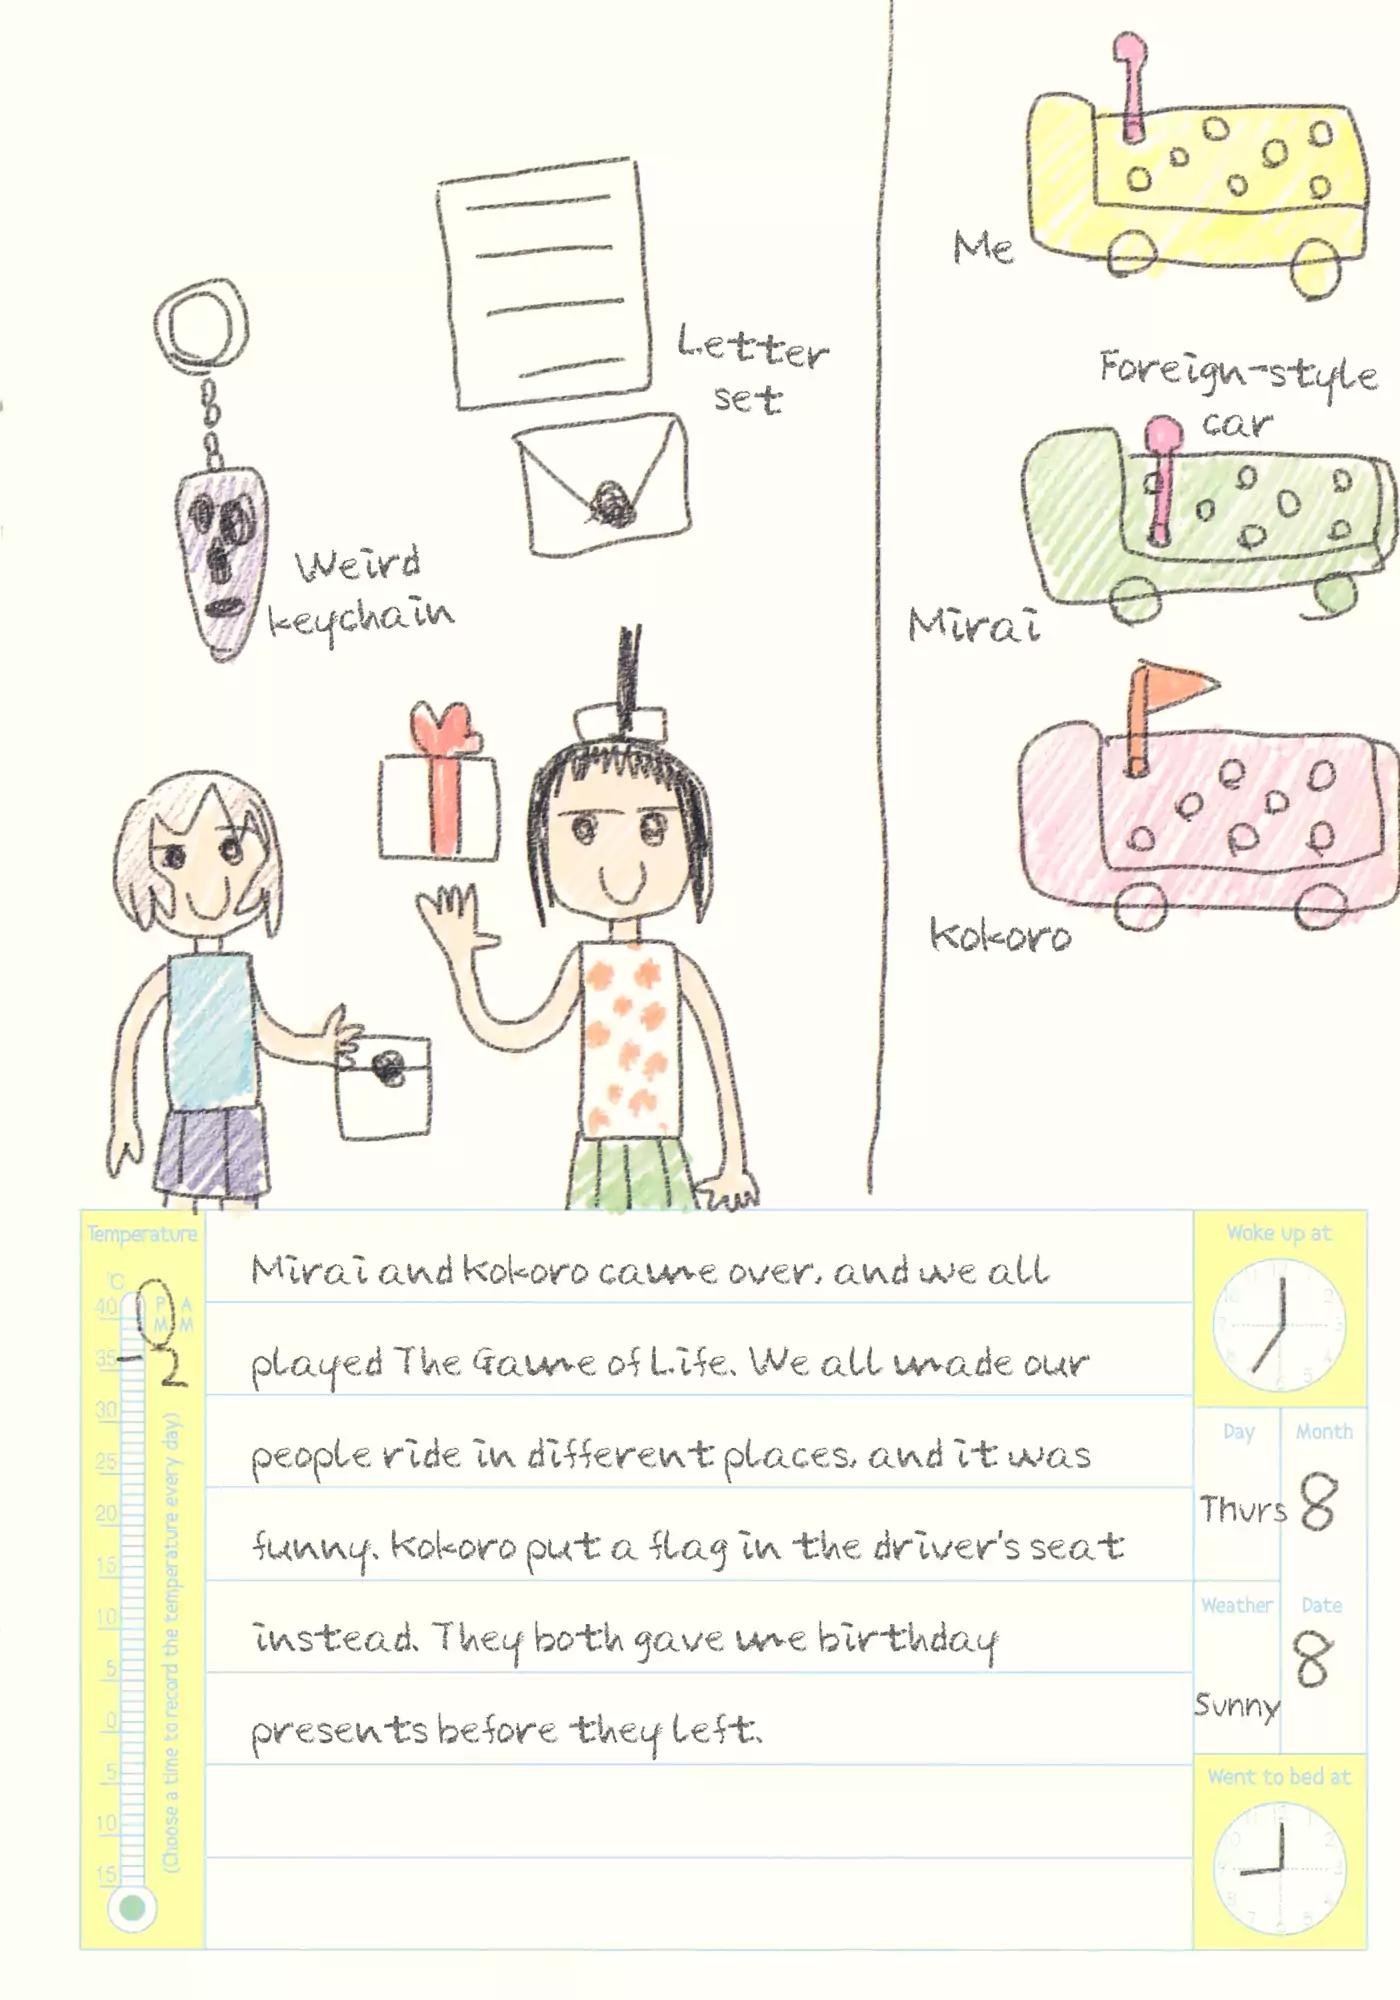 Me
Foreign-style
car
Mirai
Kokoro
Letter
set
Weird
keychain
Temperature
°C
40
35
30
25
20
15
10
5
0
5
10
15
PM AM
2
(Choose a time to record the temperature every day)
Mirai and Kokoro came over, and we all
played The Game of Life. We all made our
people ride in different places, and it was
funny. Kokoro put a flag in the driver's seat
instead. They both gave me birthday
presents before they left.
Woke up at
Day
Thurs
Month
8
Weather
Sunny
Date
8
Went to bed at